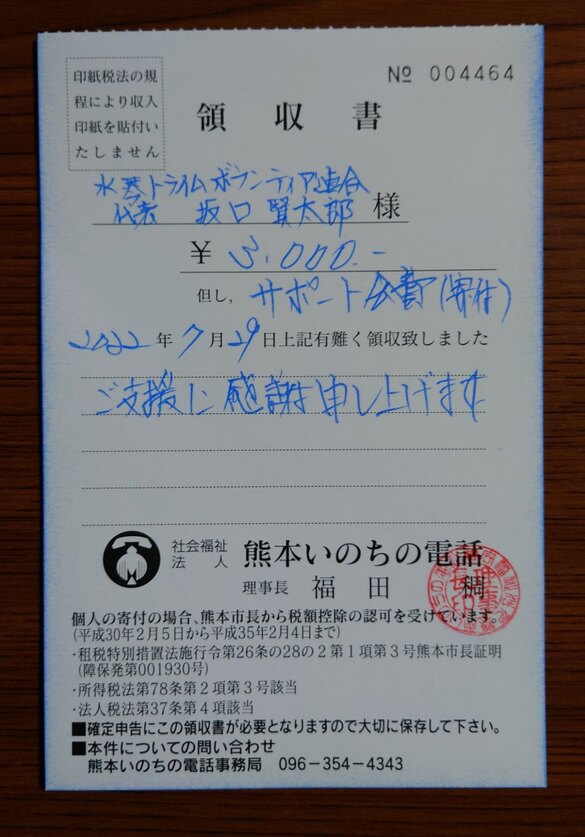 印紙税法の規
程により収入
印紙を貼付い
たしません
№ 004464
領収書
水曇トライムボランティア連合
代表 坂口賢太郎 様
¥ 3,000.-
但し、サポート会費(寄付)
2022年7月29日上記有難く領収致しました
ご支援に感謝申し上げます
社会福祉
法人
熊本いのちの電話
理事長 福田 稠
個人の寄付の場合、熊本市長から税額控除の認可を受けています。
(平成30年2月5日から平成35年2月4日まで)
・租税特別措置法施行令第26条の28の2第1項第3号熊本市長証明
(障保発第001930号)
・所得税法第78条第2項第3号該当
・法人税法第37条第4項該当
■確定申告にこの領収書が必要となりますので大切に保存して下さい。
■本件についての問い合わせ
熊本いのちの電話事務局 096-354-4343